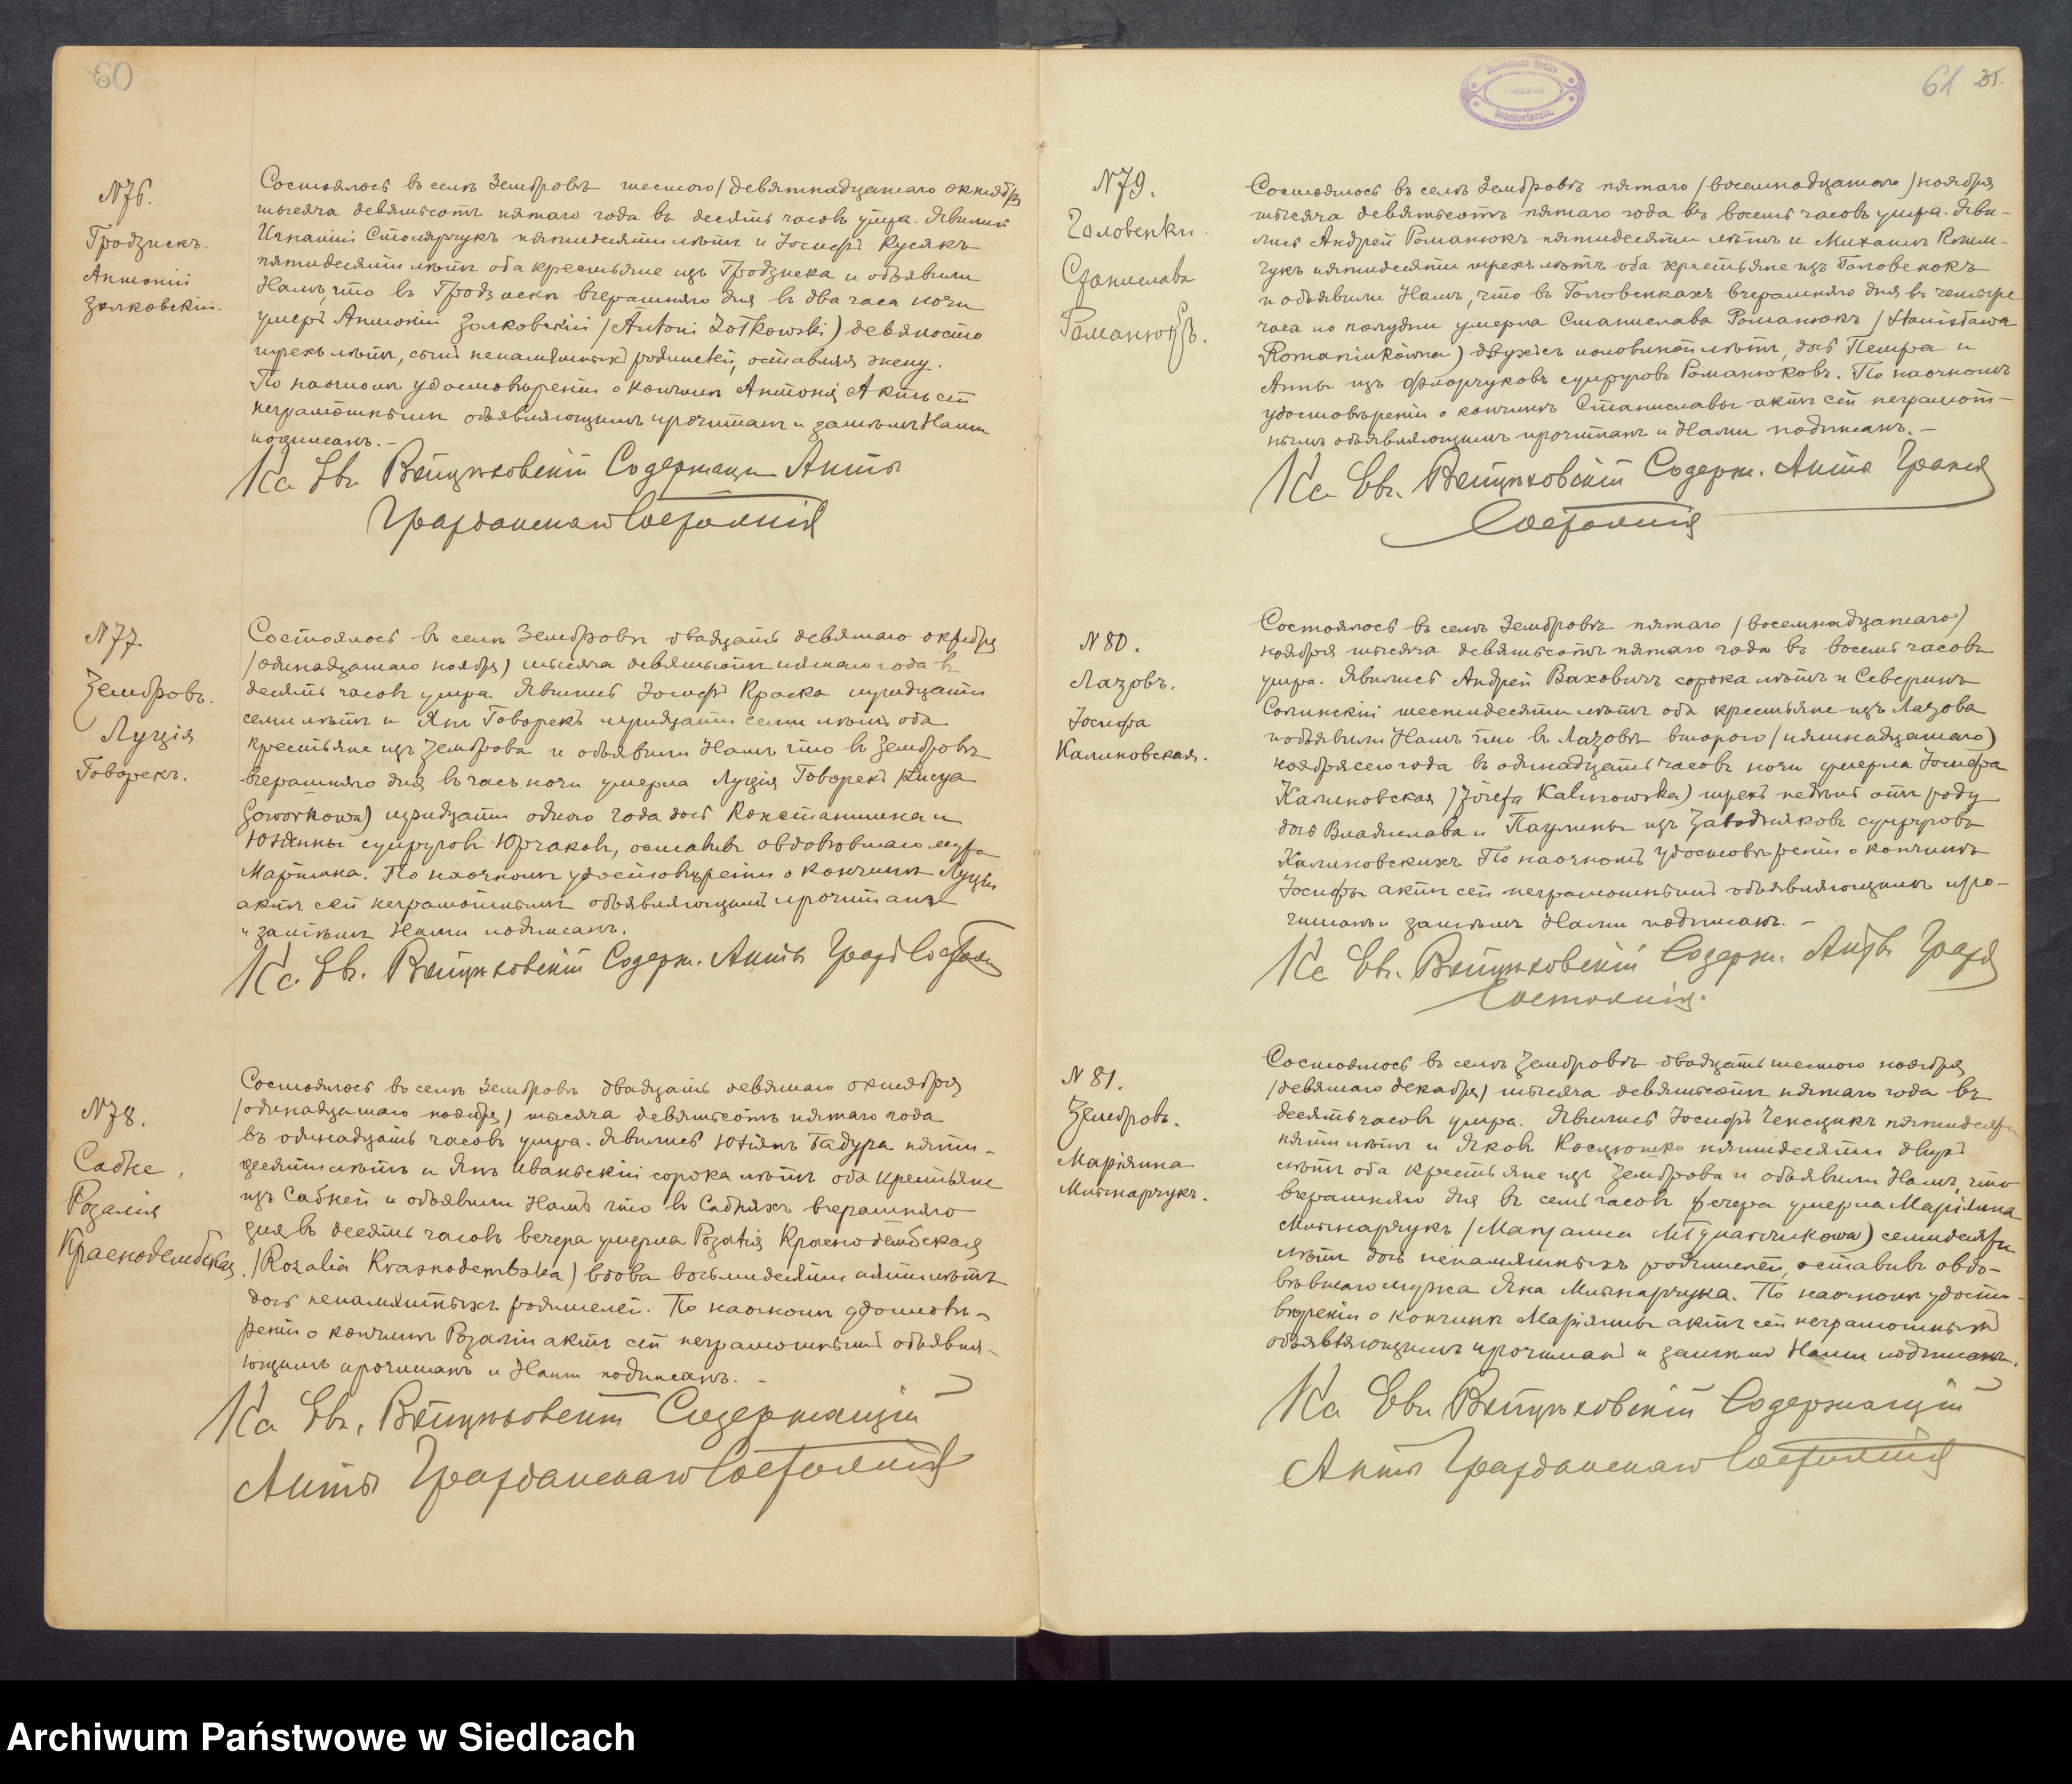 60
N76.
Гродзискъ.
Антоній
Золковскій.
Состоялось въ селѣ Зембровѣ шестого (девятнадцатаго октября
тысяча девятьсотъ пятаго года въ десять часовъ утра. Явились
Игнатій Столярчукъ пятидесяти лѣтъ и Іосифъ Кусякъ
пятидесяти лѣтъ оба крестьяне изъ Гродзиска и объявили
Намъ, что въ Гродзискѣ вчерашняго дня въ два часа ночи
умеръ Антоній Золковскій (Antoni Zołkowski) девяносто
трехъ лѣтъ, сынъ непамятныхъ родителей, оставляя жену.
По наочномъ удостовѣреніи о кончинѣ Антонія Актъ сей
неграмотнымъ объявляющимъ прочитанъ и затѣмъ Нами
подписанъ. –
Кс. Содержащій Акты
Гражданскаго Состоянія
N77.
Зембровъ.
Луція
Говорекъ.
Состоялось въ селѣ Зембровѣ двадцать девятаго октября
(одинадцатаго ноября) тысяча девятьсотъ пятаго года въ
десять часовъ утра. Явились Іосифъ Краска тридцати
семи лѣтъ и Янъ Говорекъ тридцати семи лѣтъ оба
крестьяне изъ Земброва и объявили Намъ что въ Зембровѣ
вчерашняго дня въ часъ ночи умерла Луція Говорекъ Łucya
Goworkowa) тридцати одного года дочь Константина и
супруговъ Юрчаковъ, оставивъ овдовѣвшаго мужа
Мартина. По наочномъ удостовѣреніи о кончинѣ Луціи
актъ сей неграмотнымъ объявляющимъ прочитанъ
и затѣмъ Нами подписанъ.
Кс. Содерж. Акты Гражд Состоян
N78.
Сабне.
Розалія
Краснодембская.
Состоялось въ селѣ Зембровѣ двадцать девятаго октября
(одинадцатаго ноября) тысяча девятьсотъ пятаго года
въ одинадцать часовъ утра. Явились Гадура пяти-
десяти лѣтъ и Янъ Иваньскій сорока лѣтъ оба крестьяне
изъ Сабней и объявили Намъ что въ Сабняхъ вчерашняго
дня въ десять часовъ вечера умерла Розалія Краснодембская
(Rozalia Krasnodembska) вдова восьмидесяти пяти лѣтъ
дочь непамятныхъ родителей. По наочномъ удостовѣ-
реніи о кончинѣ Розаліи актъ сей неграмотнымъ объявля-
ющимъ прочитанъ и Нами подписанъ. –
Кс. Содержащій
Акты Гражданскаго Состоянія
61 31.
N79.
Головенки.
Станислава
Романюкъ.
Состоялось въ селѣ Зембровѣ пятаго (восемнадцатаго) ноября
тысяча девятьсотъ пятаго года въ восемь часовъ утра. Яви-
лись Андрей Романюкъ пятидесяти лѣтъ и Михаилъ
чукъ пятидесяти трехъ лѣтъ оба крестьяне изъ Головенокъ
и объявили Намъ, что въ Головенкахъ вчерашняго дня въ четыре
часа по полудни умерла Станислава Романюкъ (Stanisława
Romaniukówna) двухъ съ половиной лѣтъ, дочь Петра и
Анны изъ Флорчуковъ супруговъ Романюковъ. По наочномъ
удостовѣреніи о кончинѣ Станиславы актъ сей неграмот-
нымъ объявляющимъ прочитанъ и Нами подписанъ. –
Кс. Содерж. Акты Гражд
Состоянія
N 80.
Лазовъ.
Іосифа
Калиновская.
Состоялось въ селѣ Зембровѣ пятаго (восемнадцатаго)
ноября тысяча девятьсотъ пятаго года въ восемь часовъ
утра. Явились Андрей Ваховичъ сорока лѣтъ и Северинъ
шестидесяти лѣтъ оба крестьяне изъ Лазова
и объявили Намъ что въ Лазовѣ второго (пятнадцатаго)
ноября сего года въ одинадцать часовъ ночи умерла Іосифа
Калиновская (Józefa Kalinowska) трехъ недѣль отъ роду
дочь Владислава и Паулины изъ Заводняковъ супруговъ
Калиновскихъ По наочномъ удостовѣреніи о кончинѣ
Іосифы актъ сей неграмотнымъ объявляющимъ про-
читанъ и затѣмъ Нами подписанъ. –
Кс. Содерж. Акты Гражд
Состоянія.
N 81.
Зембровъ.
Маріянна
Млынарчукъ.
Состоялось въ селѣ Зембровѣ двадцать шестого ноября
(девятаго декабря) тысяча девятьсотъ пятаго года въ
десять часовъ утра. Явились Іосифъ пятидесяти
пяти лѣтъ и Яковъ Косцюшко пятидесяти двухъ
лѣтъ оба крестьяне изъ Земброва и объявили Намъ, что
вчерашняго дня въ семь часовъ вечера умерла Маріянна
Млынарчукъ (Maryanna Młynarczukowa) семидесяти
лѣтъ дочь непамятныхъ родителей, оставивъ овдо-
вѣвшаго мужа Яна Млынарчука. По наочномъ удосто-
вѣреніи о кончинѣ Маріянны актъ сей неграмотнымъ
объявляющимъ прочитанъ и затѣмъ Нами подписанъ.
Кс. Содержащій
Акты Гражданскаго Состоянія
Archiwum Państwowe w Siedlcach